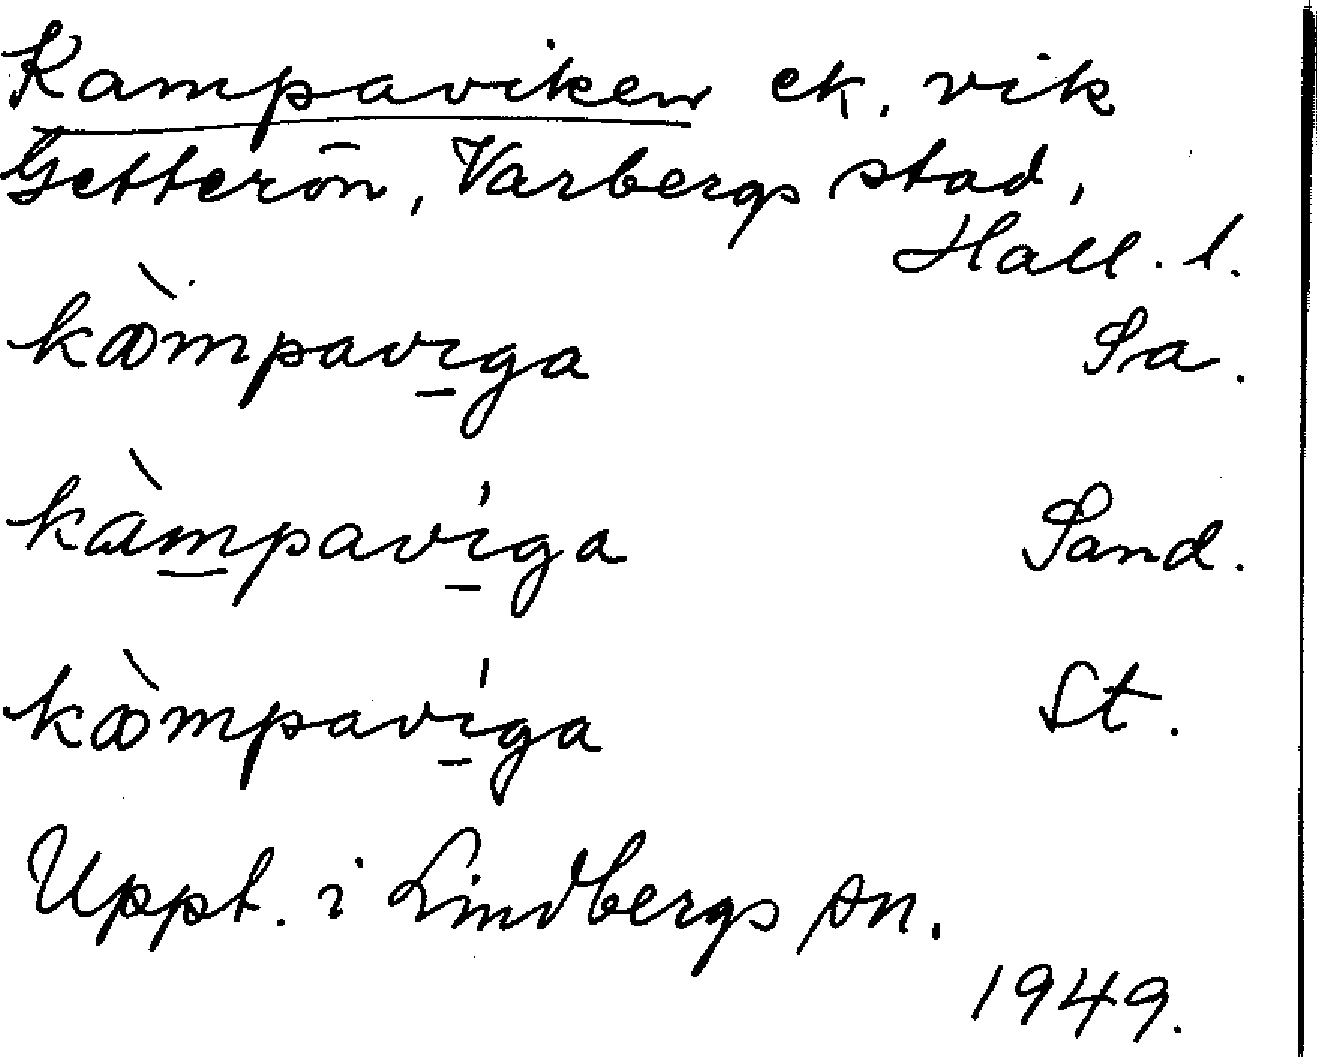 Kampaviken ek. vik
Getterön, Varbergs stad,
Hall. l.
kàmpavi̱ga Sa.
kàm̱paví̱ga Sand.
kàmpaví̱ga St.
Uppt. i Lindbergs sn.
1949.